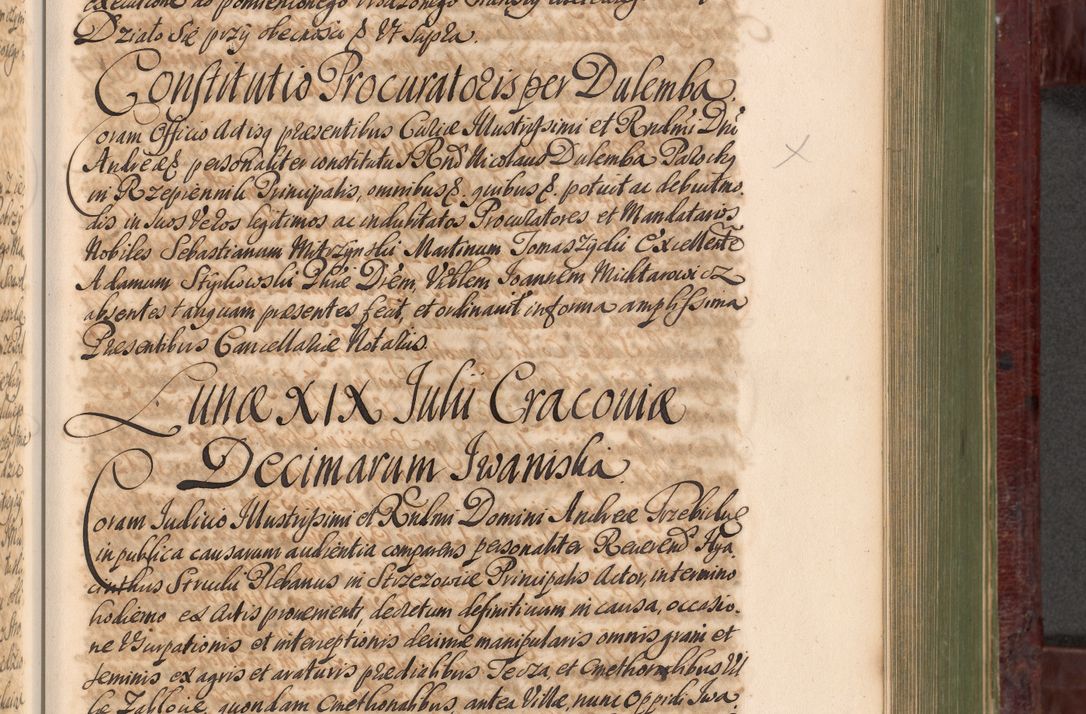 Działo Się przy obecności & Vt supra.
Constitutio Procuratoris per Dulemba.
Coram Officio Actisq presentibus Curiæ Illustrissimi et Rndmi Dni
Andreæ & personaliter constitutus Rnd Nicolaus Dulemba Parochq
in Rzepiennik Principalis, omnibus &. quibus &. potuit ac debuit mo,
dis in suos veros legitimos ac indubitatos Procuratores et Mandatarios
Nobiles Sebastianum Mirzynski Martinum Tomaszycki Excellente
Adamum Stychowski Phiæ Diem, Viblem Joannem Michtarowicz
absentes tanquam præsentes fecit, et ordinauit in forma amplissima
Presentibus Cancellariæ Notarijs.
Lunæ XIX Julii Cracouiæ
Decimarum Iwaniska
Coram Iudicio Illustrissimi et Rndmi Domini Andreæ Trzebicki &
in publica causarum audientia comparens personaliter Reuerend Hya
cinthus Struski Plebanus in Strzezowice Principalis Actor, in termino
hodierno ex Actis prouenienti, decretum definitiuum in causa, occasio.
ne Vsurpationis et interceptionis decimæ manipularis omnis grani et
seminis ex agris et araturis prædialibus Terza et Cmethonalibus Vi
læ Zabłocie, quondam Cmethonalibus, antea Villæ, nunc Oppidi Iwa,